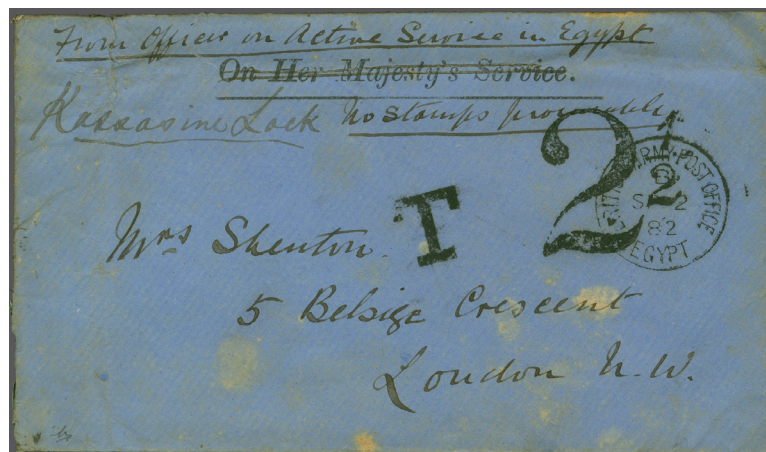 From Officer on Active Service in Egypt
On Her Majesty's Service.
Kassasine Lock No Stamps procurable
T 2
BRITISH ARMY POST OFFICE
2
SP 2
82
EGYPT
Mrs Shenton.
5 Belsize Crescent
London N.W.